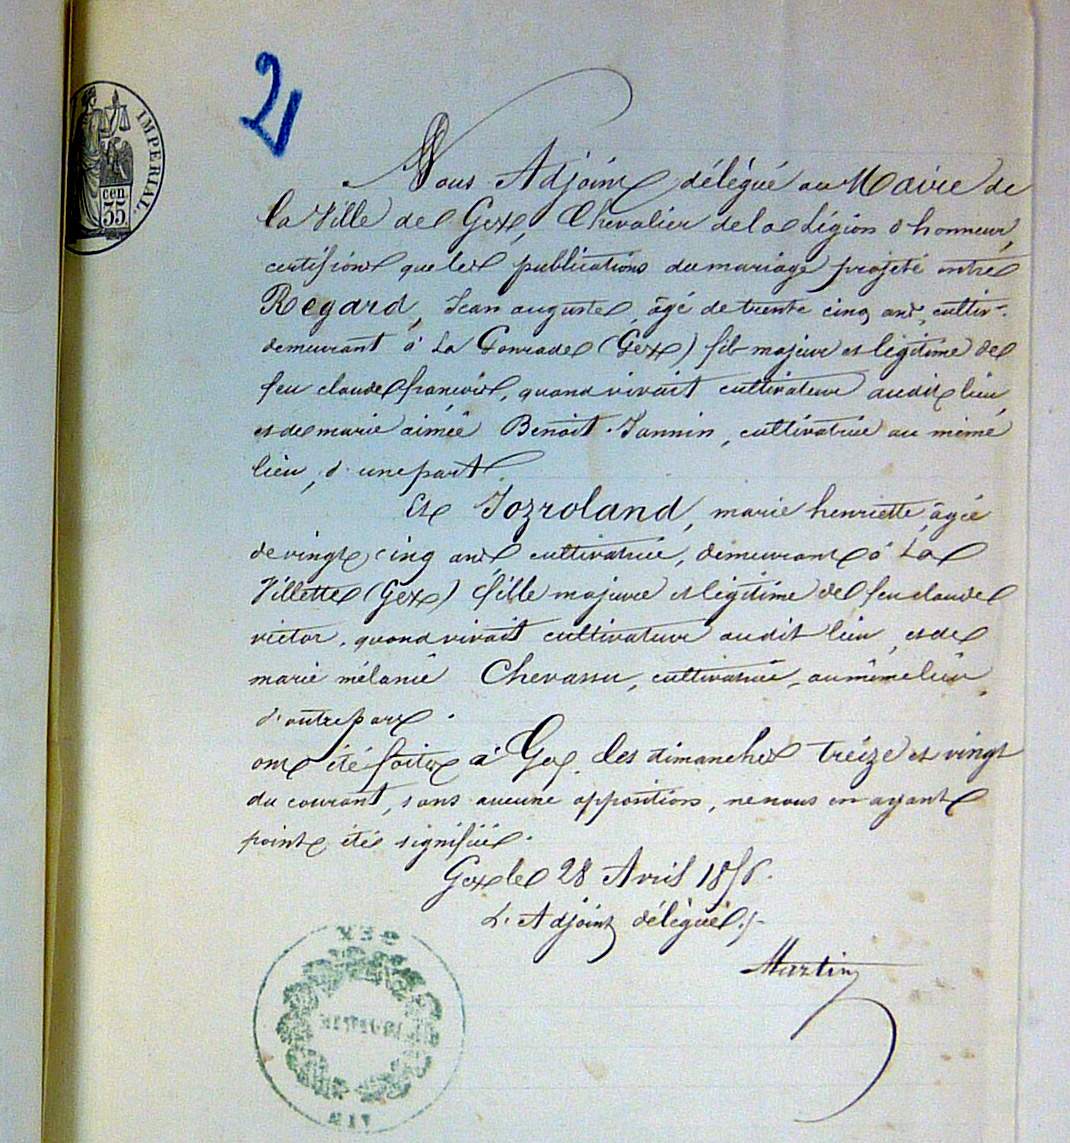 2
IMPERIAL.
cen.
35
Nous Adjoint délégué au Maire de
la Ville de Gex, Chevalier de la Légion d'honneur,
certifions que les publications du mariage projeté entre
Regard, Jean auguste, âgé de trente cinq ans, cultivr.
demeurant à La (Gex) fils majeur et légitime de
feu claude françois, quand vivait cultivateur audit lieu,
et de marie aimée Benoit-Jannin, cultivatrice au même
lieu, d'une part.
Et Jozroland, marie henriette, âgée
de vingt cinq ans, cultivatrice, demeurant à La
Villette (Gex) fille majeure et légitime de feu claude
victor, quand vivait cultivateur audit lieu, et de
marie mélanie Chevassu, cultivatrice, au même lieu,
d'autre part.
ont été faites à Gex, les dimanches treize et vingt
du courant, sans aucune opposition, ne nous en ayant
point été signifiée.
Gex le 28 Avril 1856.
L'Adjoint délégué,
Martin
GEX